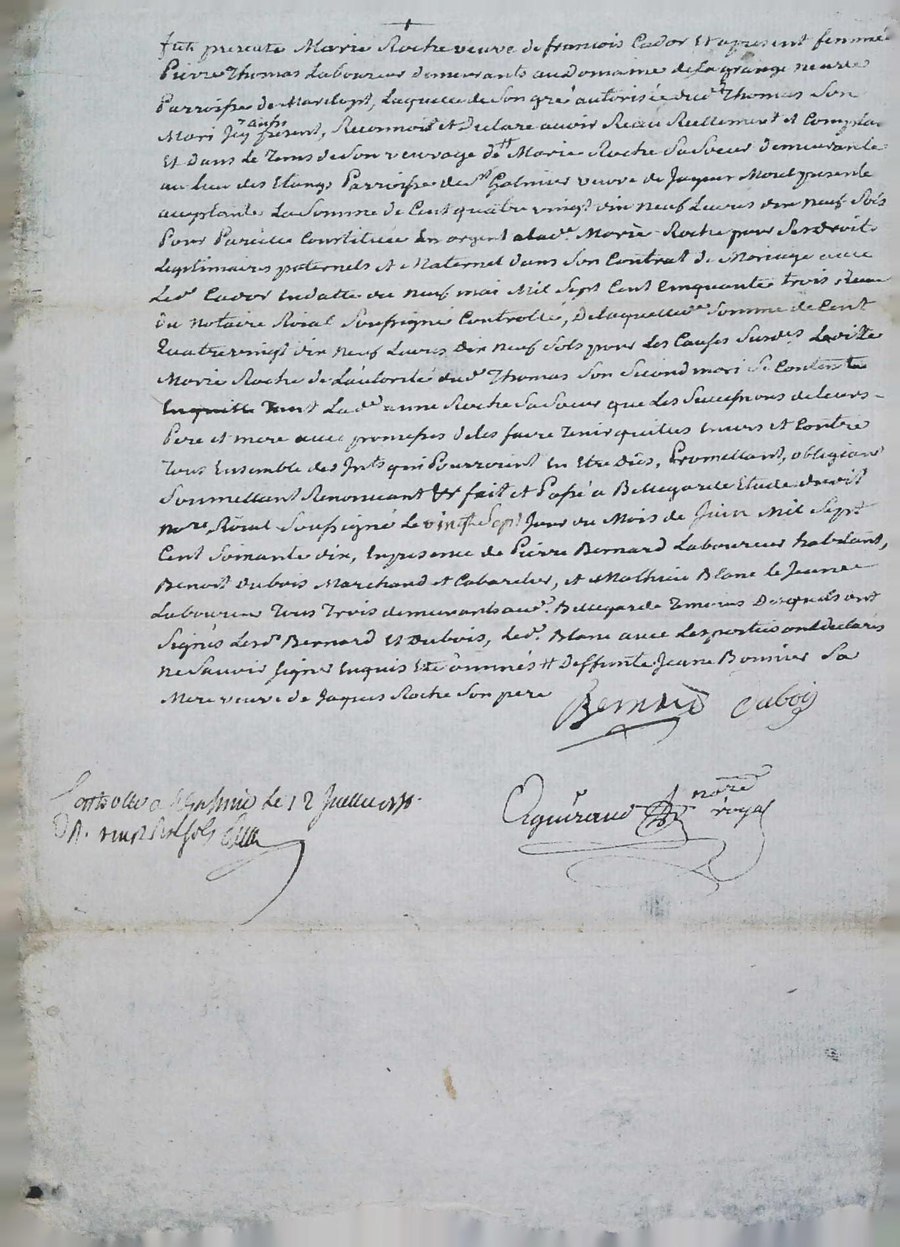 fut presente Marie Roche veuve de francois Cador et apresent femme
Pierre Thomas Laboureur demeurants au domaine de la grange neuve
Parroisse de Marclopt, Laquelle de Son gré autorisée dud. Thomas Son
Mari Icy present, Reconnoit et declare avoir Receu Reellement et Comptan
Et dans le Tems de Son veuvage de # Marie Roche Sa Soeur demeurante
au lieu des Etangs Parroisse de St Galmier veuve de Jaques Morel presente
acceptante La Somme de Cent quatre vingt dix neuf Livres dix neuf Sols
Pour Pareille Constituée En argent a lad. Marie Roche pour Ses Droits
Legitimaires paternels et Maternel dans Son Contrat de Mariage avec
Led. Cador En datte du neuf mai Mil Sept Cent Cinquante trois Receu
Du Notaire Roial Soussigné Controllé, De laquelle de. Somme de Cent
Quatre vingt dix neuf Livres Dix neuf Sols pour Les Causes Susdes. Laditte
Marie Roche de L'autorité dud. Thomas Son Second mari Se Contente
En quitte Tant Lad. anne Roche Sa Soeur que Les Successions de Leurs
Pere et mere avec promesses de les faire Tenir quittes Envers et Contre
Tous Ensemble des Intts qui Pourroint En Etre Dûs, Promettant, obligeant
Soumettant Renonceant &c fait et Passé a Bellegarde Etude du dit
Nore. Roial Soussigné Le vingt Sept Jour du Mois de Juin Mil Sept
Cent Soixante dix, En presence de Pierre Bernard Laboureur habitant,
Benoit Dubois Marchand et Cabaretier, et Mathieu Blanc le Jeune
Laboureur Tous Trois demeurants aud. Bellegarde Temoins Desquels ont
Signés Lesd. Bernard Et Dubois, Led. Blanc avec Les parties ont declarés
Ne Scavoir Signer Enquis Et Sommés # Deffunte Jeanne Bonnier Sa
Mere veuve de Jaques Roche Son pere
Bernard Dubois
Controllé a St Galmier le 12 Juillet
Aguiraud nore royal